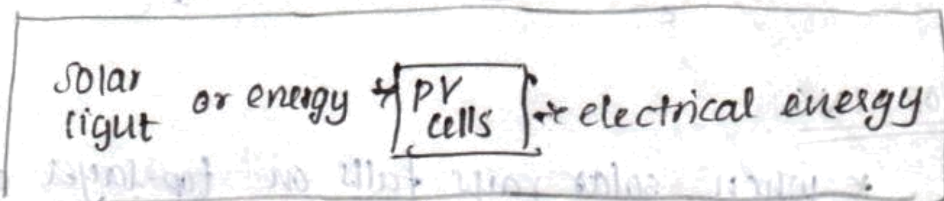 Solar
light or energy → PV
cells → electrical energy